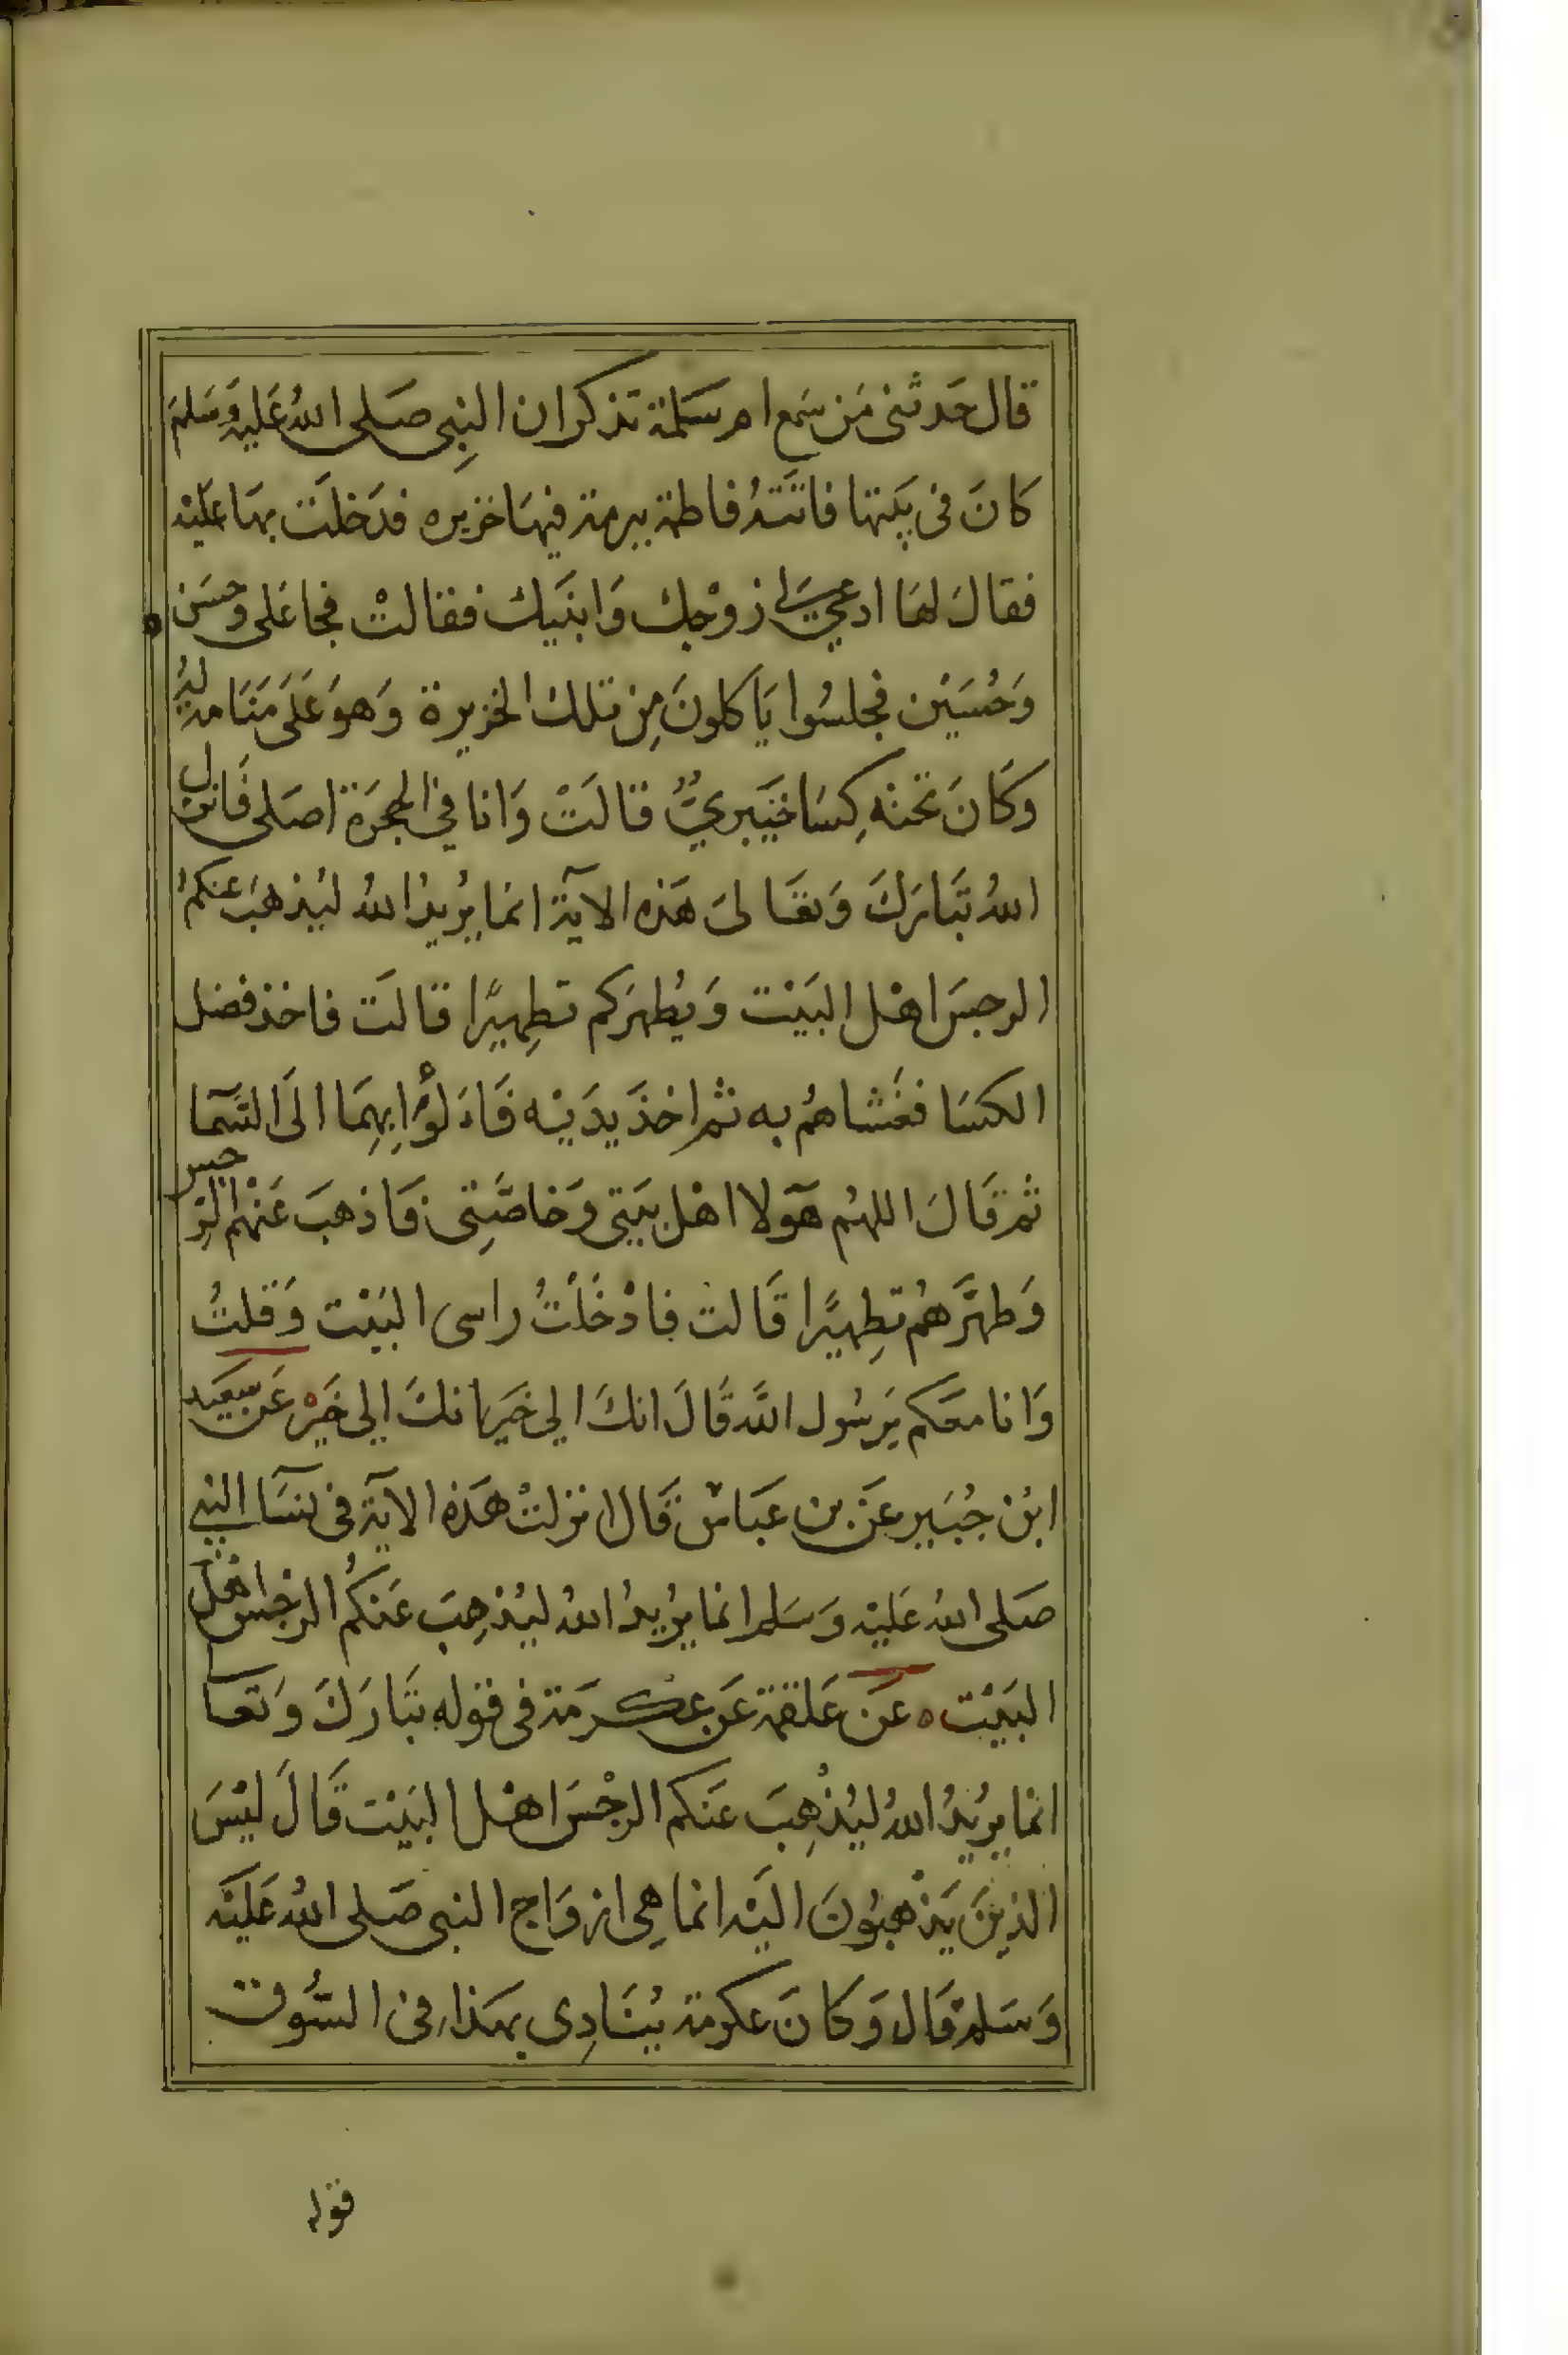 قال حَدثنى مَن سَمع ام سَلمة تذكر ان النبِى صَلى اللهُ عَليهِ وَسَلمَ
كَانَ فى بَيتها فاتَتهُ فاطمة ببرمة فيهَا خزيره فدَخلَت بهَا عَليْه
فقالَ لهَا ادعي لى زوْجك وَابنَيك فقالتْ فجا على وحسَن
وَحُسَيْن فجلسُوا يَاكلونَ مِن تلك الخزيرة وَهوَ عَلَى مَنَامة لهُ
وكَانَ تحتهُ كِسَا خيَبريٌّ قالَتْ وَانا في الحجرَة اصَلى فَانزل
اللهُ تَبَارَكَ وَتعَالىَ هَذه الايَة انما يُريدُ اللهُ ليُذهبَ عنكمُ
الرجسَ اهْل البَيْت وَيُطهرَكم تطهِيرًا قالَت فاخذ فضل
الكسَا فغَشاهُم به ثم اخذَ يدَيْه فَاَلوُاْ بِهِمَا الَى السَّمَآ
ثم قَالَ اللهُم هَولآ اهْل بيَتِى وَخاصَّتِى فَاذهبَ عَنْهُم الرِجس
وَطهَّرهُم تطِهيرًا قَالت فادْخَلتُ راسى البَيْت وَقلتُ
وَانا معَكم يَرسُول اللَّه قَالَ انكَ الي خَير انكَ الي خَيْر عَن سَعيَد
ابْن جُبَير عَن بن عَباسٌ قَال انزلتْ هَذه الايَة فى نسَآ النبي
صَلى اللهُ عَليْه وَسَلم انما يرُيدُ اللهُ ليُذهِبَ عَنكُم الرجس اهْل
البَيْت ه عَن عَلقمة عَن عكرمَة فى قوله تبَارَكَ وَتعَا
انما يرُيدُ اللهُ ليُذْهِبَ عَنكم الرجْسَ اهْل البَيْت قَالَ ليْسَ
الذينَ يَذْهبُونَ اليَه انما هِى ازوَاج النبى صَلى اللهُ عَليَه
وَسَلم قَال وَكانَ عكرمة يُنَادِى بهَذا فى السُّوق
قوله